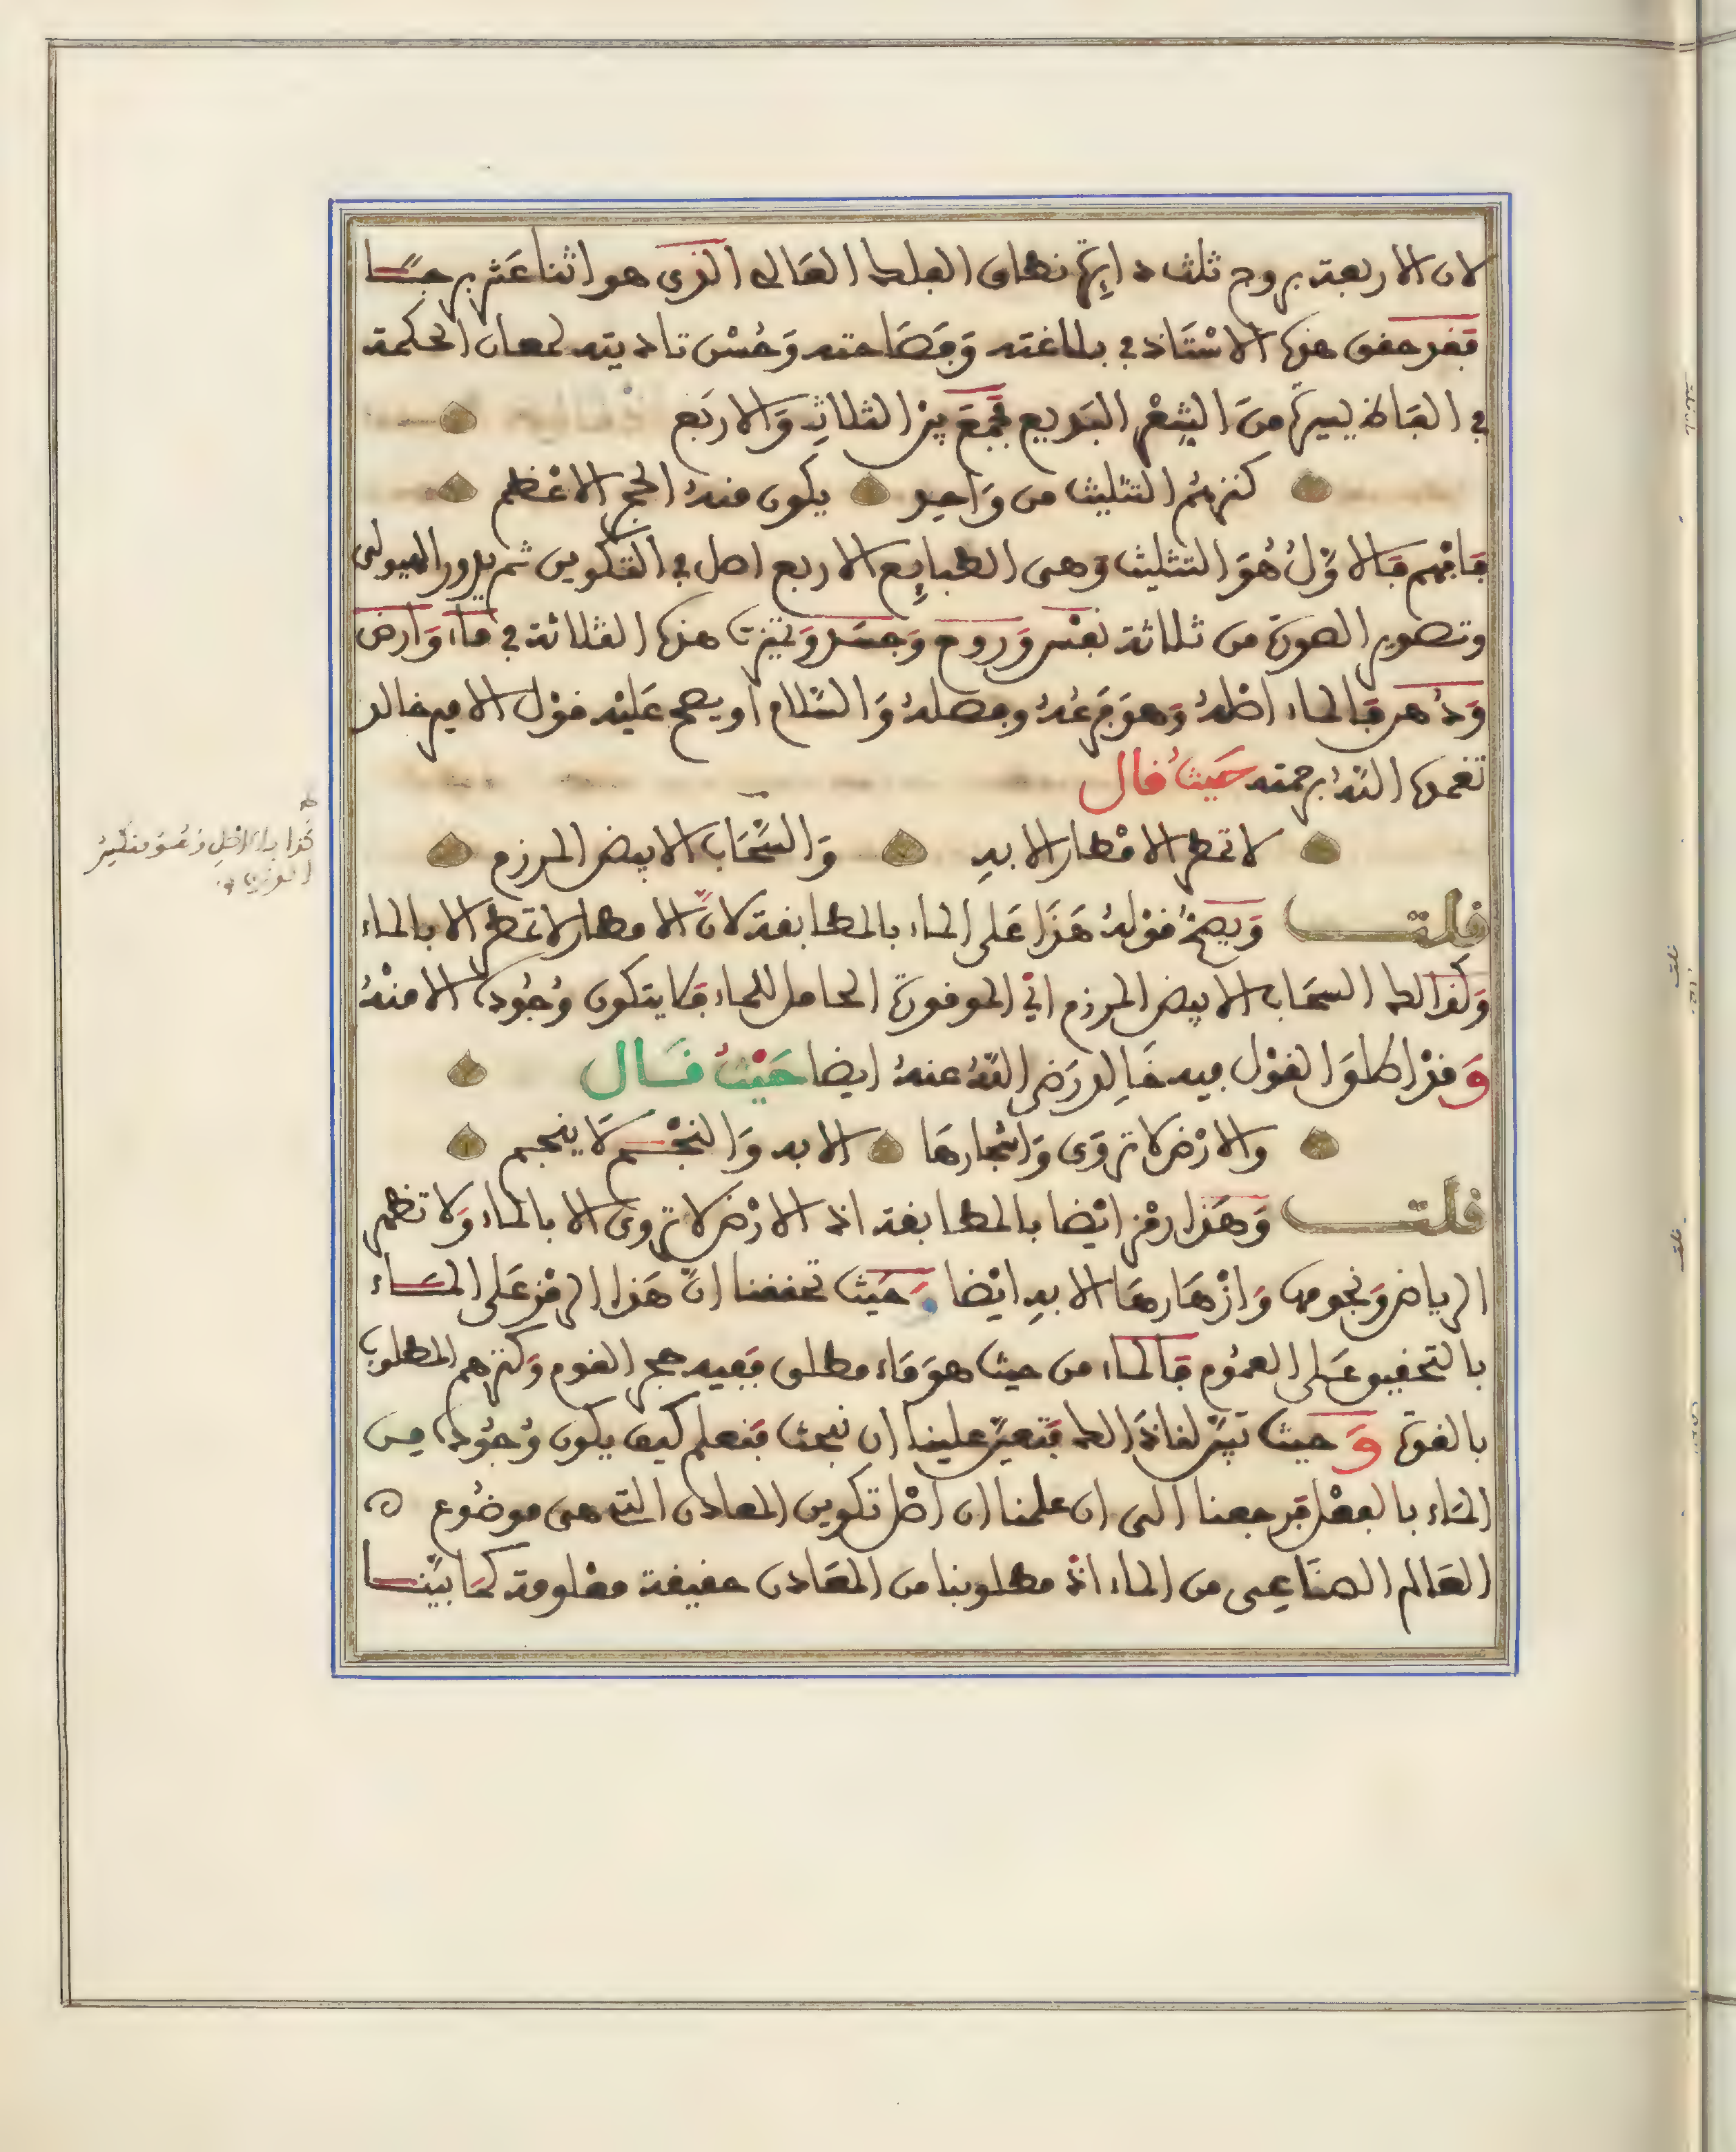 لان الاربعة بروج ثلث دايرة نطاق الفلك العالي الذي هو اثنا عشر برجا
فقد حقق هذا الاستاذ في بلاغته وفصاحته وحسن تاديته لمعان الحكمة
في الفاظ يسيرة من الشعر البديع فجمع بين الثلاث والاربع
كنزهم التثليث من واحد يكون منه الحجر الاعظم
فافهم فالاول هو التثليث وهى الطبايع الاربع اصل في التكوين ثم يدور الهيولى
وتصوير الصورة من ثلاثة نفس وروح وجسد وتميزت هذه الثلاثة في ماء وارض
ودهن فالماء اصله وهو فرعه وفصله والسلام او يصح عليه قول الامير خالد
تغمده الله برحمته حيث قال
لا تمطر الامطار الا به والسحاب الابيض المرزم
قلت ويصح قوله هذا على الماء بالمطابقة لان الامطار لا تمطر الا بالماء
وكذالك السحاب الابيض المرزم اي الموقورة الحامل للماء فلا يتكون وجوده الا منه
وقد اطلق القول فيه خالد رضي الله عنه ايضا حيث قال
والارض لا تروى واشجارها الا به والنجم لا ينجم
قلت وهذا رمز ايضا بالمطابقة اذ الارض لا تروى الا بالماء ولا تظهر
الرياض ونجومها وازهارها الا به ايضا وحيث تحققنا ان هذا الرمز على الماء
بالتحقيق على العموم فالماء من حيث هو ماء مطلق ففيه حجر القوم وكنزهم المطلوب
بالقوة وحيث تبين لنا ذالك فتعين علينا ان نبحث فنعلم كيف يكون وجوده من
الماء بالفعل فرجعنا الى ان علمنا ان اصل تكوين المعادن التي هى موضوع
العالم الصناعى من الماء اذ مطلوبنا من المعادن حقيقة معلومة كما بينا
كذا بالاصل
الوزن